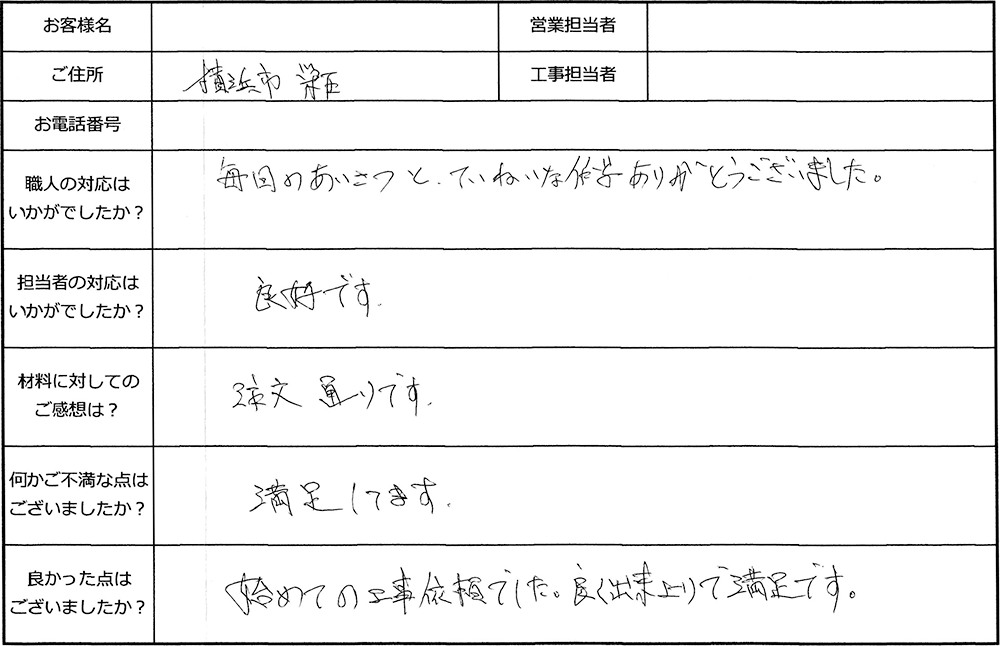 お客様名 営業担当者
ご住所 横浜市 栄区 工事担当者
お電話番号
職人の対応は
いかがでしたか？
毎回のあいさつと、ていねいな作業ありがとうございました。
担当者の対応は
いかがでしたか？
良好です.
材料に対しての
ご感想は？
注文通りです.
何かご不満な点は
ございましたか？
満足してます.
良かった点は
ございましたか？
始めての工事依頼でした。良く出来上りで満足です。